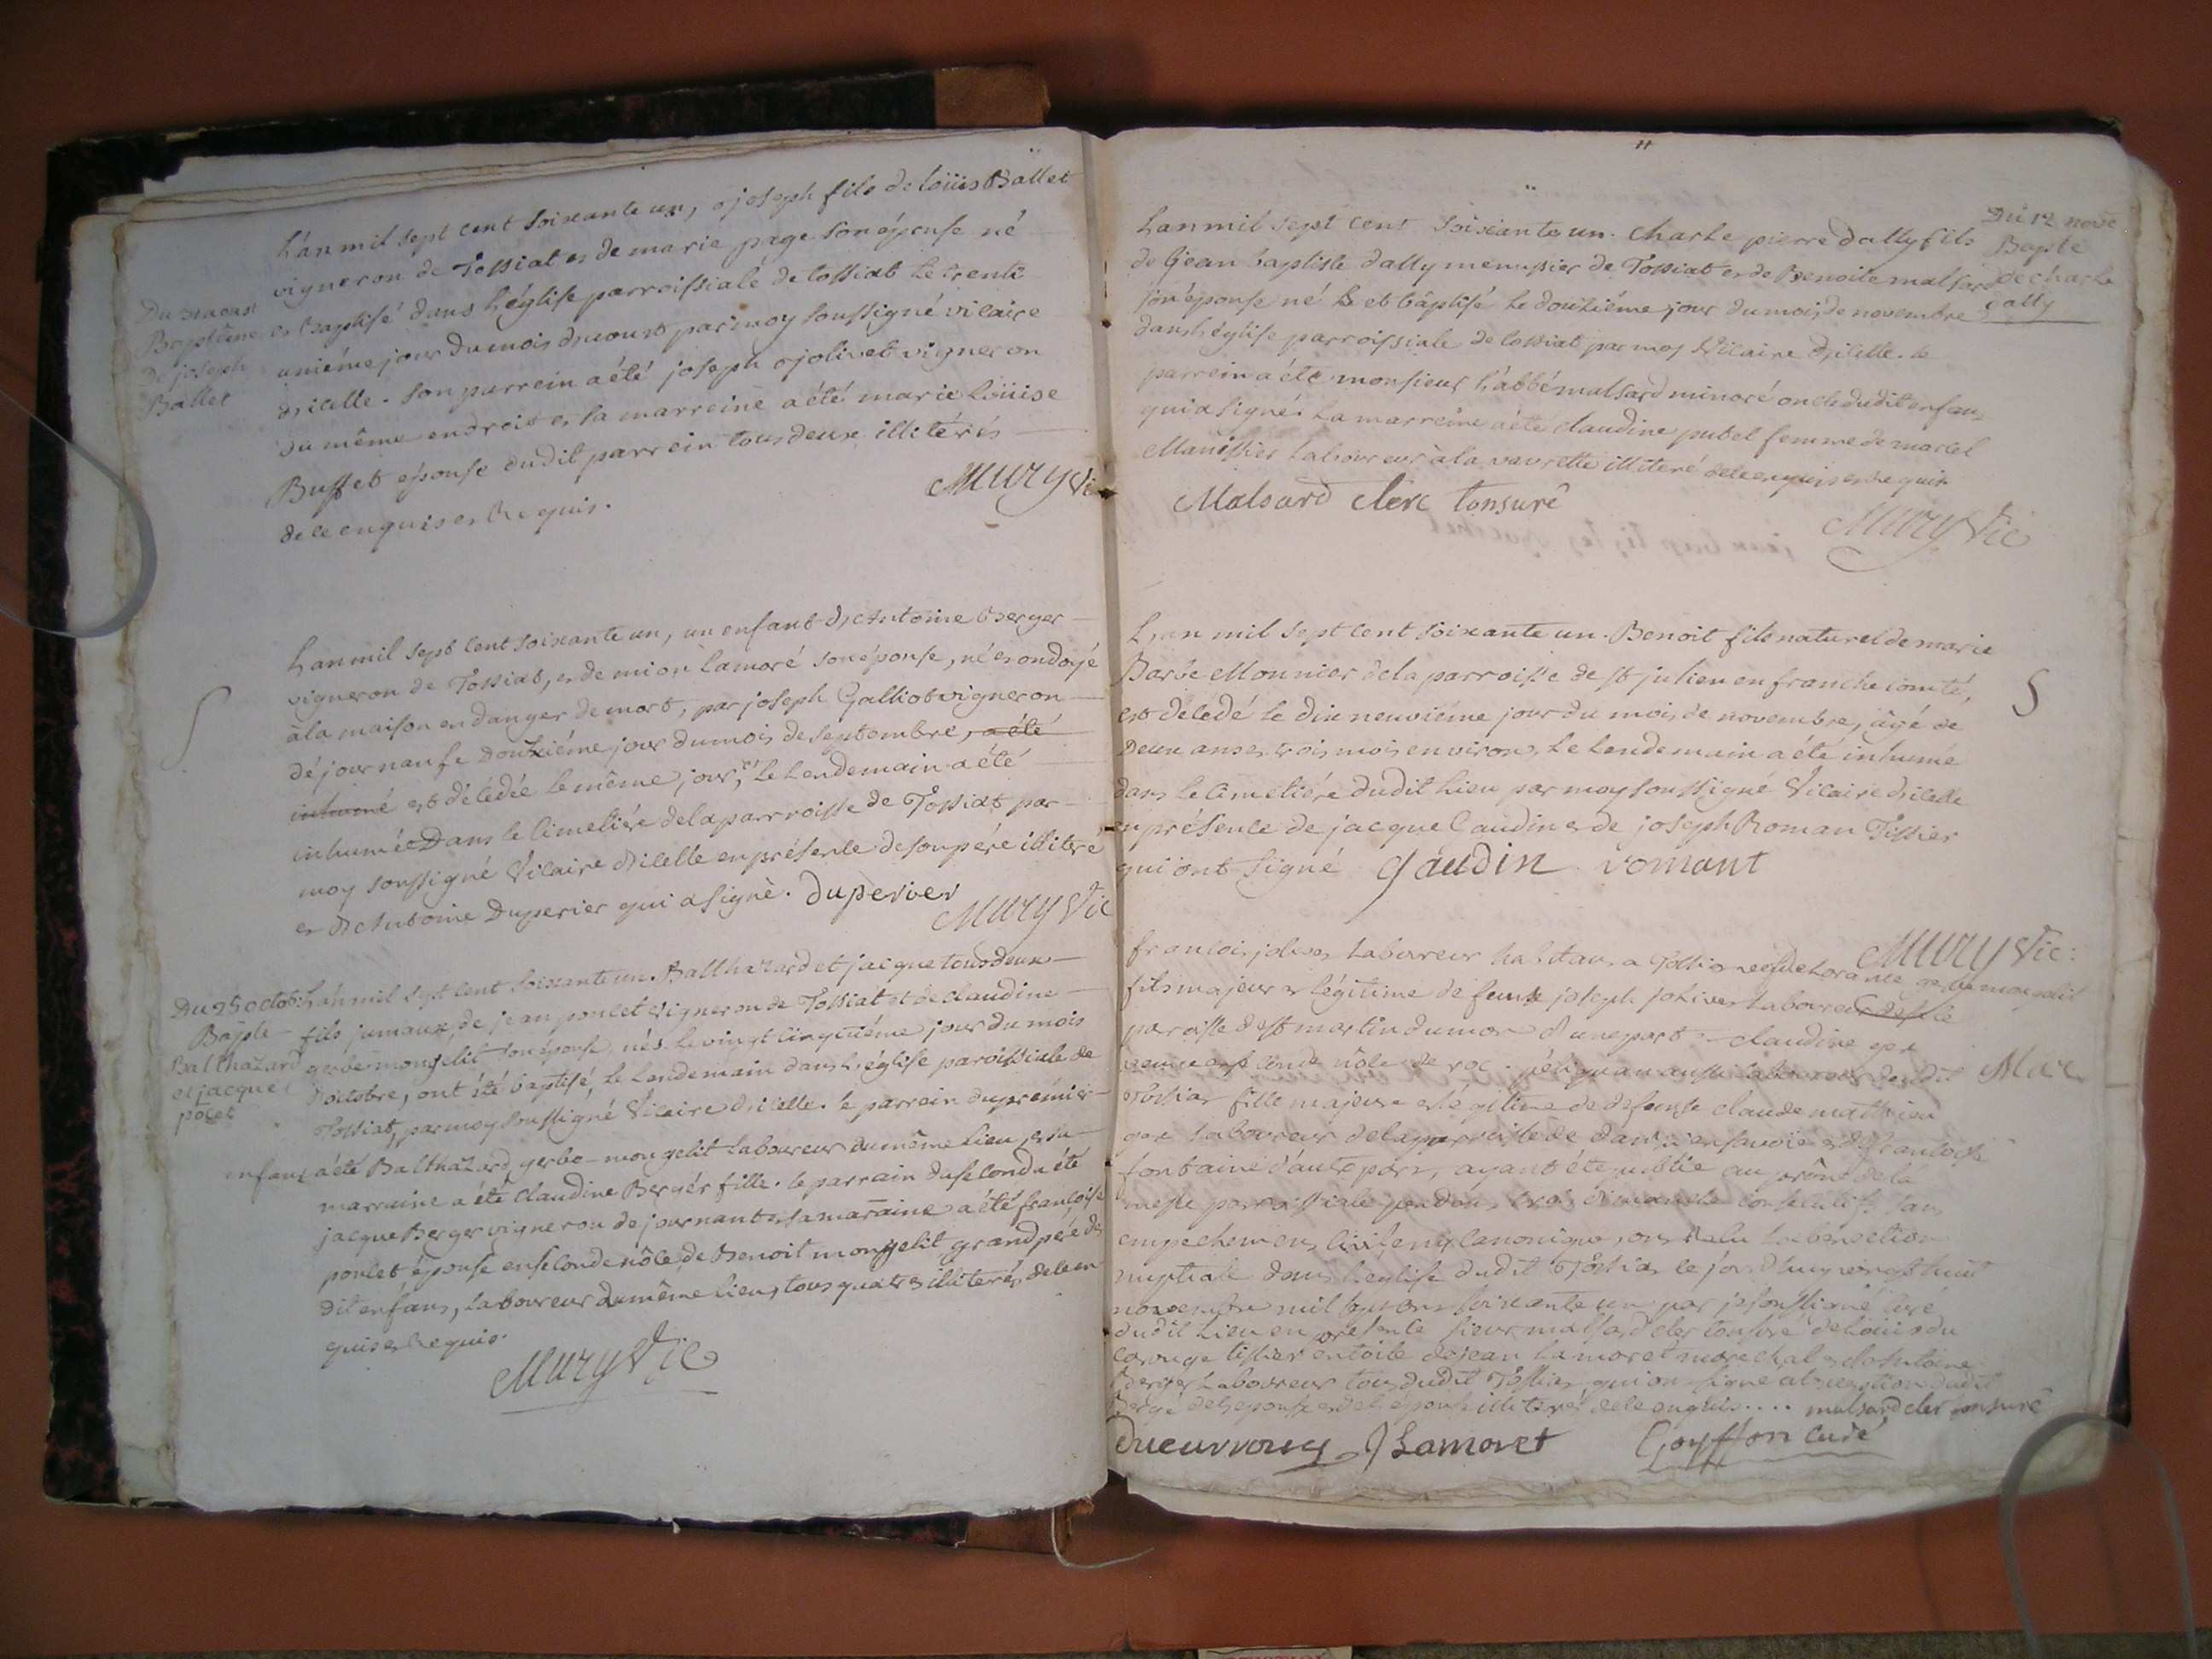 Du 31 aoust
Baptême
de joseph
Ballet
L'an mil sept cent soixante un, joseph fils de loüis Ballet
vigneron de Tossiat et de marie page son épouse né
et baptisé dans l'église parroissiale de tossiat le trente
uniéme jour du mois d'aoust par moy soussigné vicaire
d'icelle. son parrein a été joseph jolivet vigneron
du même endroit et la marreine a été marie loüise
Buffet epouse dudit parrein tous deux illitérés
de ce enquis et Requis.
Mury Vic
L'an mil sept cent soixante un, un enfant d'Antoine Berger
vigneron de Tossiat, et de mion lamoré son épouse, né et ondoyé
à la maison en danger de mort, par joseph Galliot vigneron
de journans le douziéme jour du mois de septembre, a été
inhumé est décédée le même jour, et le lendemain a été
inhumée Dans le cimetière de la parroisse de Tossiat par
moy soussigné Vicaire d'icelle en présence de son pére illitéré
et d'Antoine Duperier qui a signé. duperier
Mury Vic
Du 25 octob:
Bapte
Balthazard
et jacque
pocet
L'an mil sept cent soixante un. Balthazard et jacque tous deux
fils jumaux, de jean poncet vigneron de Tossiat et de claudine
gerbe mongelit son épouse, nés le vingt cinquiéme jour du mois
d'octobre, ont été baptisé, le lendemain dans l'église paroissiale de
Tossiat, par moy soussigné Vicaire d'icelle. le parrain du premier
enfant a été Balthazard gerbe-mongelit laboureur du même lieu, et sa
marraine a été claudine Bergér fille. le parrain du second a été
jacque Berger vigneron de journans et sa maraine a été françoise
poncet épouse en seconde nôce de Benoit mongelit grand pére des
dit enfans, laboureur du même lieu, tous quatre illiterés, de ce en
quis et Requis.
Mury Vic
11
Du 12 nove
Bapte
de charle
dally
L'an mil sept cent soixante un. Charle pierre dally fils
de jean baptiste dally menusier de Tossiat et de Benoite malsard
son épouse né et bâptisé le douziéme jour du mois de novembre
dans l'église parroissiale de tossiat par moy Vicaire d'icelle. le
parrein a été monsieur l'abbé malsard minoré oncle dudit enfan
qui a signé. La marreine a été claudine putel femme de marcel
Manissier laboureur à la vavrette illiteré de ce enquis et requis
Malsard clerc tonsuré
Mury Vic
L'an mil sept cent soixante un. Benoit fils naturel de marie
Barbe Monnier de la parroisse de st julien en franche comté,
est décédé le dix neuviéme jour du mois de novembre, âgé de
deux ans et trois mois environ, le lendemain a été inhumé
dans le cimetiére dudit lieu par moy soussigné Vicaire d'icelle
en présence de jacque Gaudin et de joseph Roman Tissier
qui ont signé Gaudin romant
Mury Vic:
Mar
françois jolivet laboureur habitan a Tossia
fils majeur et légitime de feu joseph jolivet laboureur
paroisse de st martin du mon d'une part et claudine gex
veuve en seconde nôce de roc laboureur dudit
Tossia fille majeure et légitime de defunt claude mathieu
gex laboureur de la parroisse de en savoie et de françoise
fontaine d'autre part, ayant été publié au prône de la
messe parroissiale pendant trois dimanche consecutifs sans
empechement civil, ny canonique, ont reçu la bénédiction
nuptiale dans l'église dudit Tossia le jourd'huy vingt huit
novembre mil sept cent soixante un par je soussigné curé
dudit lieu en presence sieur malsard clerc tonsuré de loüis du
curouge tissier en toile de jean lamoret marechal et d'Antoine
Berger laboureur tous dudit Tossia qui ont signé a l'exception dudit
Berger de l'epoux et de l'épouse illiterés de ce enquis.... malsard clerc tonsuré
Ducurroug J Lamoret Goyffon curé